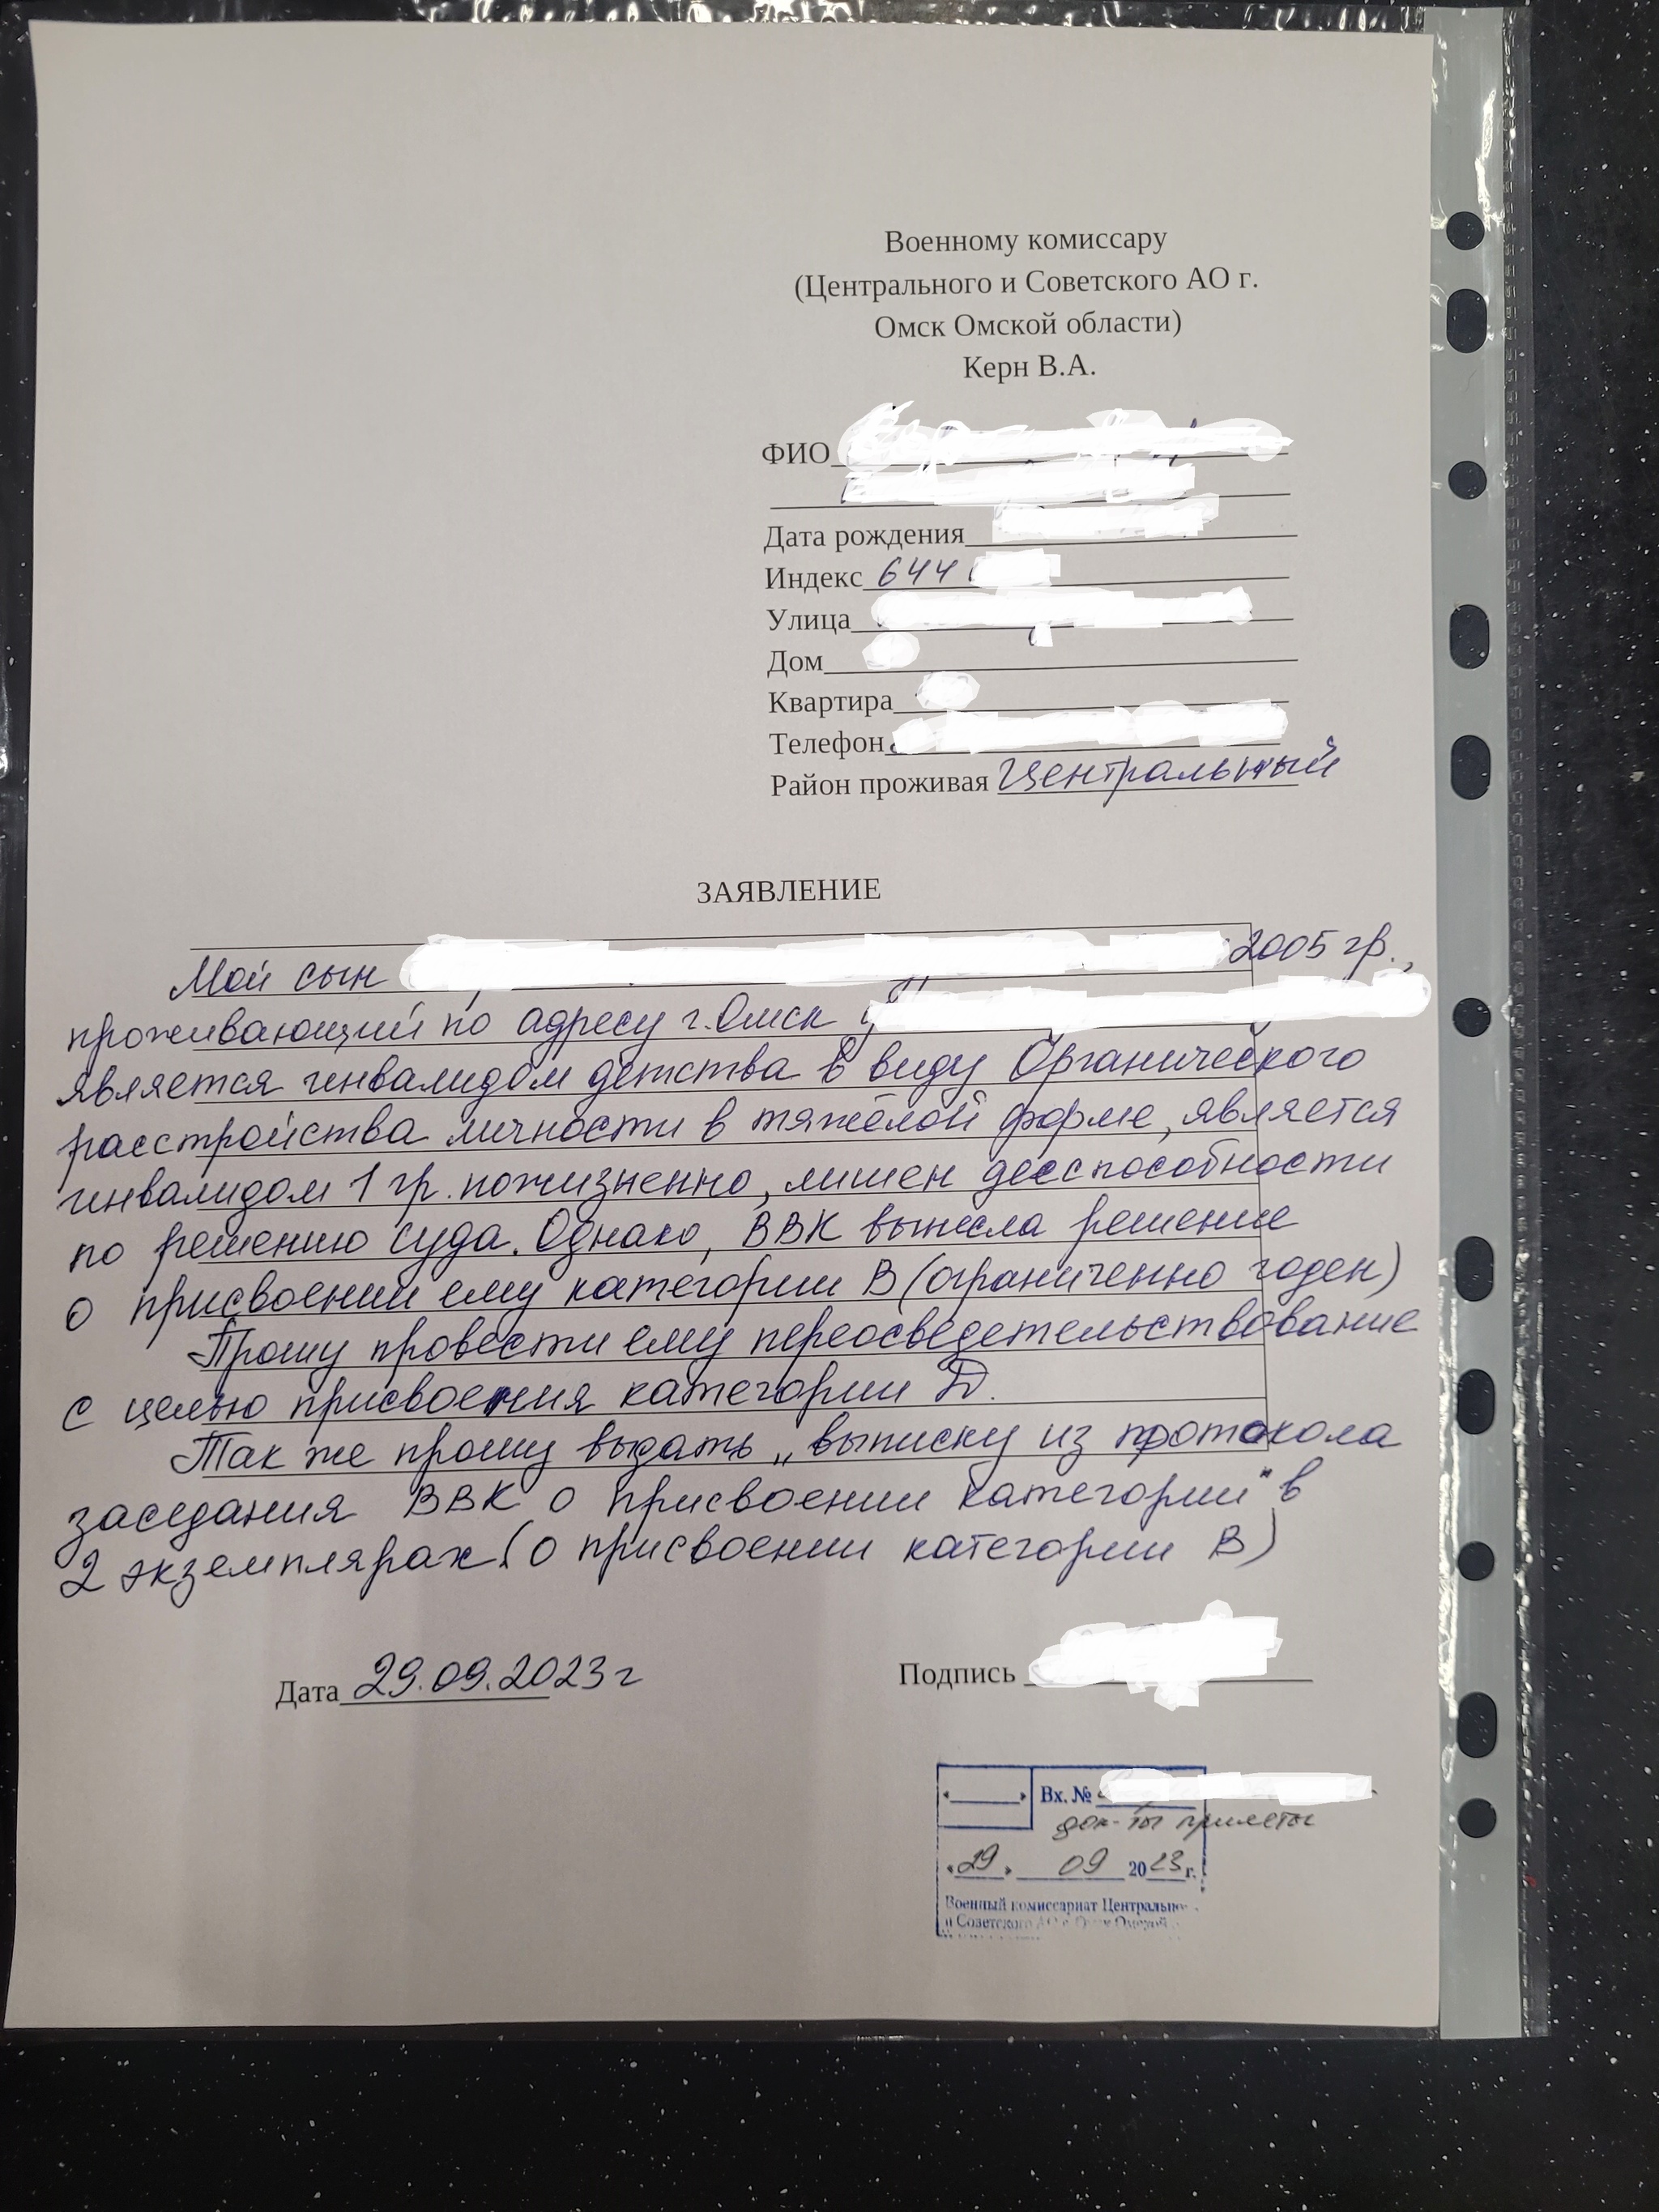 Военному комиссару
(Центрального и Советского АО г.
Омск Омской области)
Керн В.А.
ФИО
Дата рождения
Индекс 644
Улица
Дом
Квартира
Телефон
Район проживая Центральный
ЗАЯВЛЕНИЕ
Мой сын 2005 гр.,
проживающий по адресу г. Омск
является инвалидом детства в виду Органического
расстройства личности в тяжёлой форме, является
инвалидом 1 гр. пожизненно, лишен дееспособности
по решению суда. Однако, ВВК вынесла решение
о присвоении ему категории В (ограниченно годен)
Прошу провести ему переосведетельствование
с целью присвоения категории Д.
Так же прошу выдать „выписку из протокола
заседания ВВК о присвоении категории" в
2 экземплярах (о присвоении категории В)
Дата 29.09.2023 г
Подпись
Вх. №
док-ты приняты
«29» 09 2023 г.
Военный комиссариат Центрально
и Советского АО г.